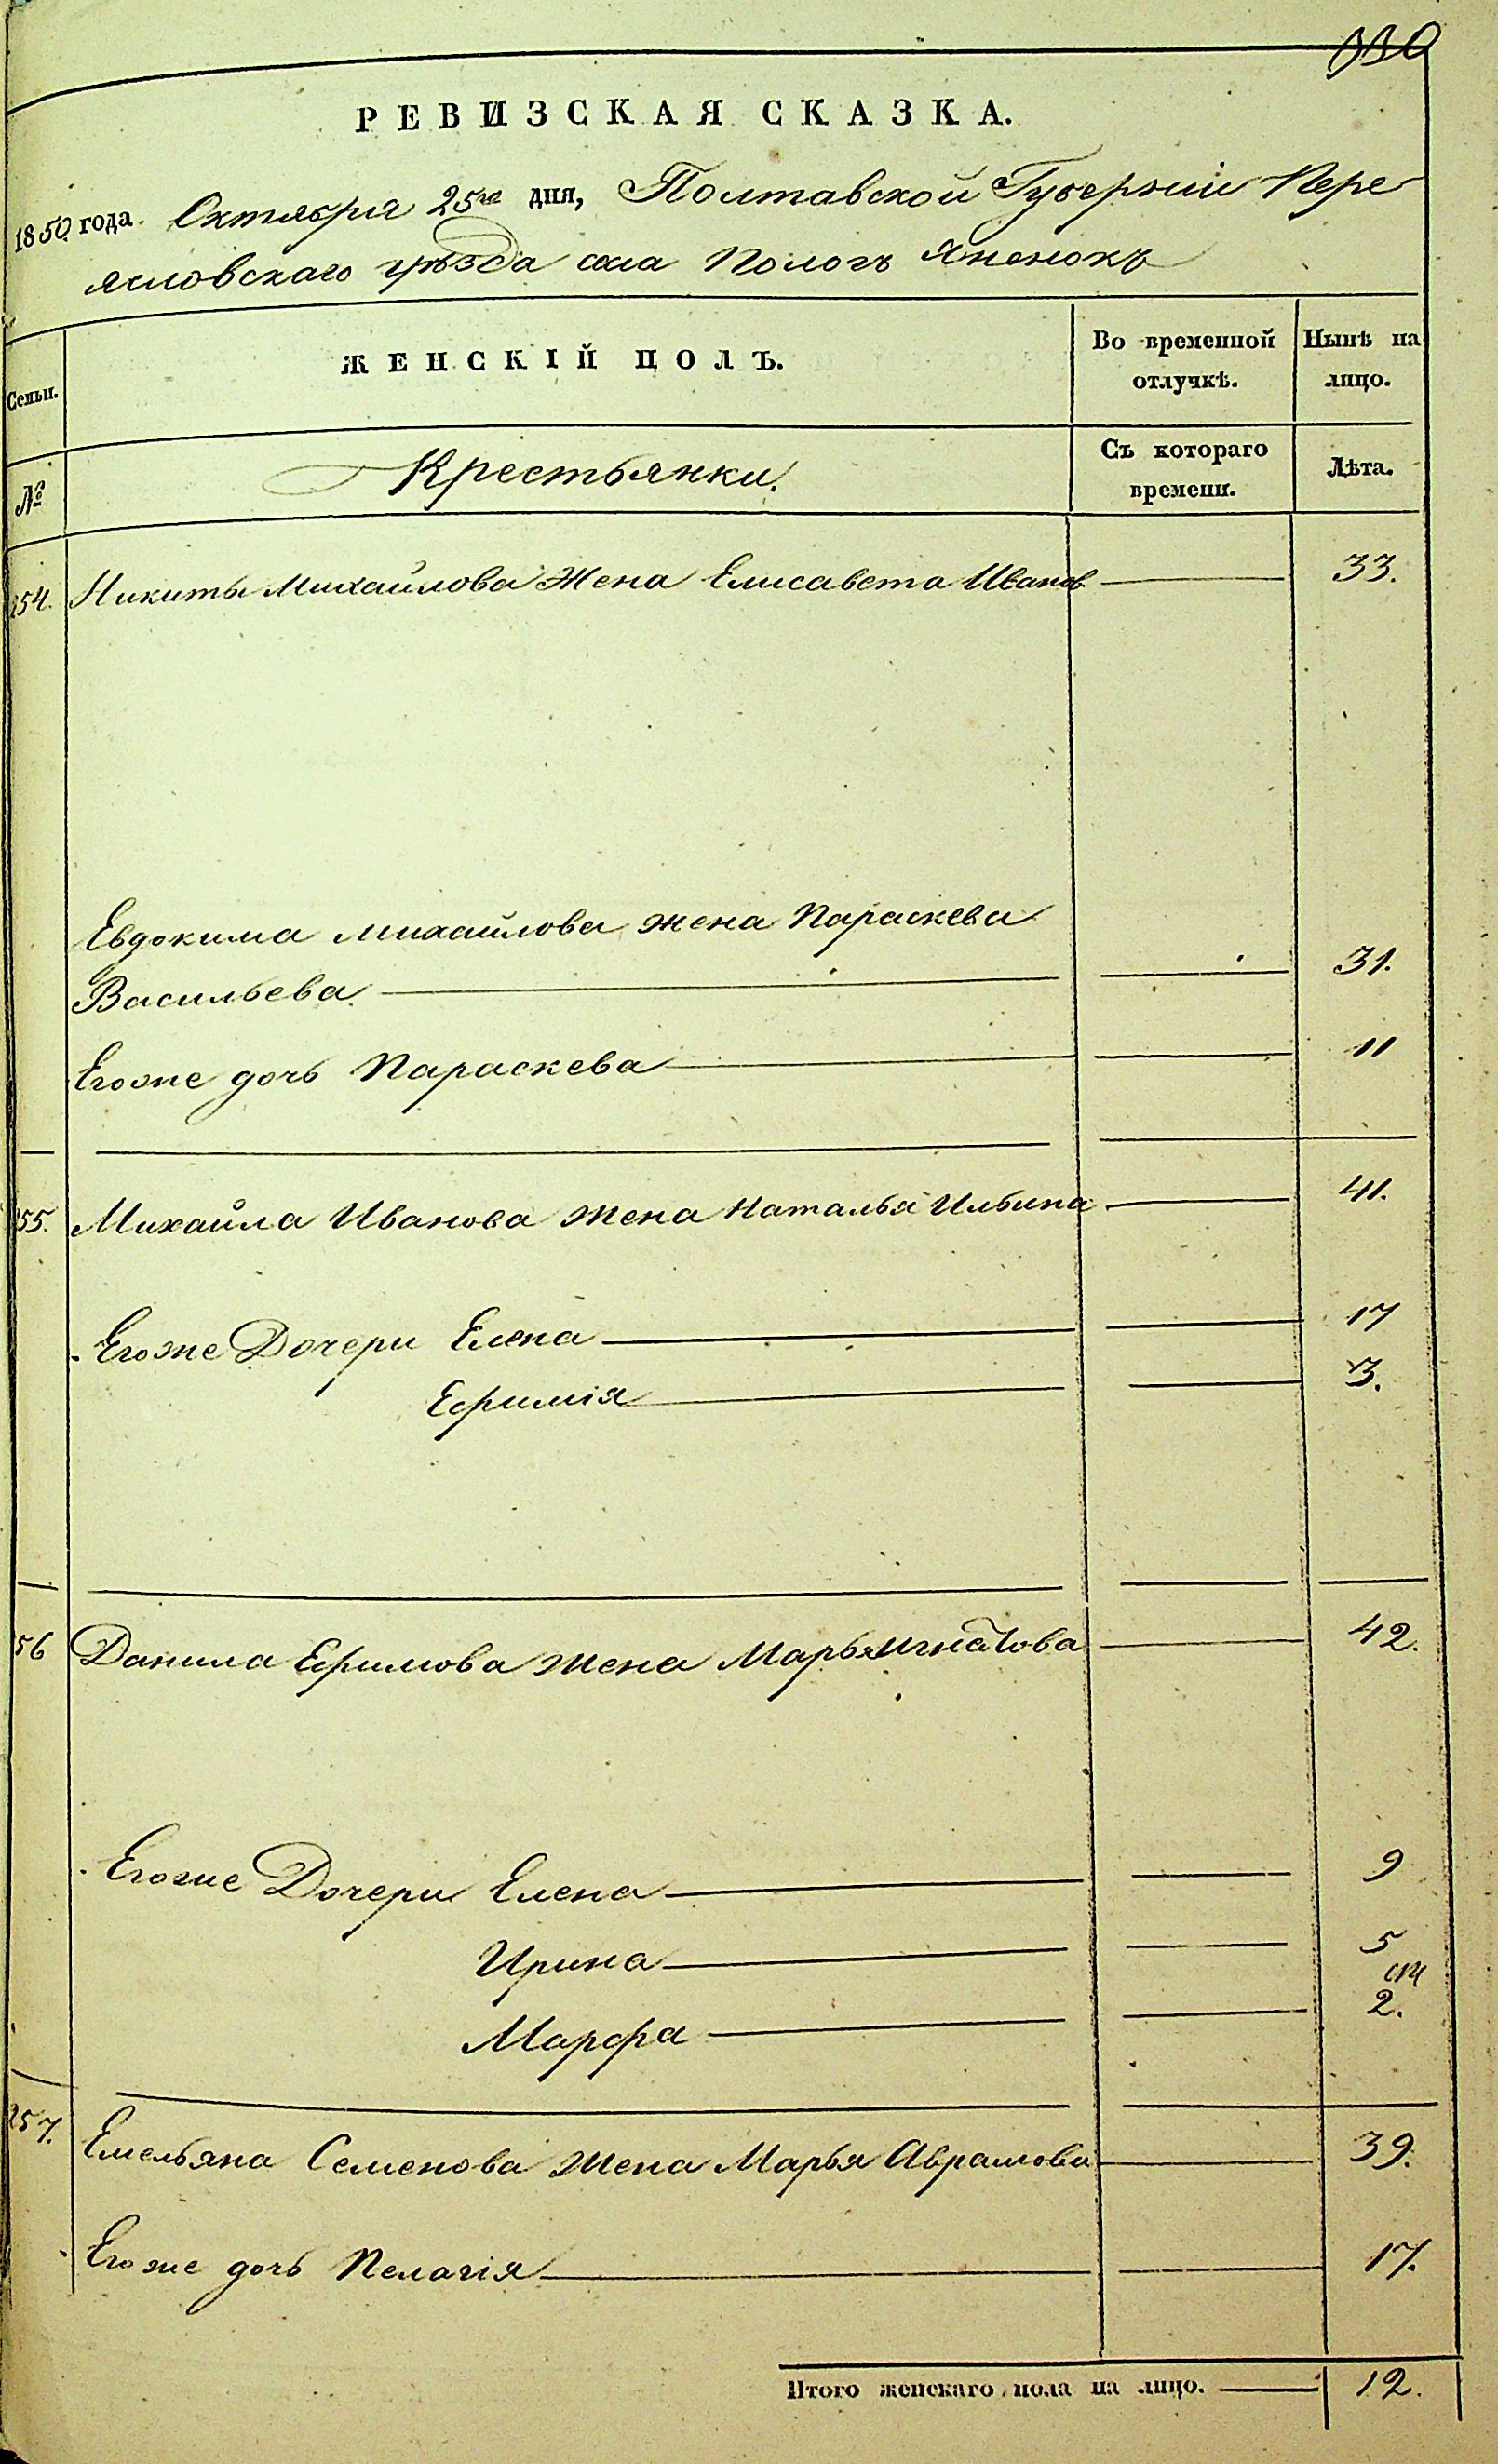 330
РЕВИЗСКАЯ СКАЗКА.
1850 года Октября 25го дня, Полтавской Губерніи Пере
яславскаго уѣзда села Пологъ Яненокъ
Семьи.
ЖЕНСКІЙ ПОЛЪ.
Во временной отлучкѣ.
Нынѣ на лицо.
№
Крестьянки.
Съ котораго времени.
Лѣта.
254. Никиты Михайлова Жена Елисавета Иванов 33.
Евдокима Михайлова жена Параскева
Васильева 31.
Егоже дочь Параскева 11
255. Михайла Иванова жена Наталья Ильина 41.
Егоже Дочери Елена 17
Ефимія 3.
256 Данила Ефимова жена Марья Игнатова 42.
Егоже Дочери Елена 9
Ирина 5
Марфа 2.
257. Емельяна Семенова жена Марья Аврамова 39.
Егоже дочь Пелагія 17.
Итого женскаго пола на лицо. 12.